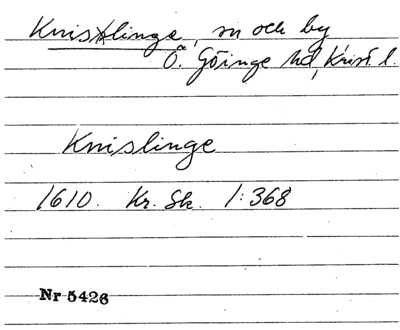 Knislinge, sn och by
Ö. Göinge hd, Krist. l.
Knislinge
1610. Kr. Sk. 1:368
Nr 5426